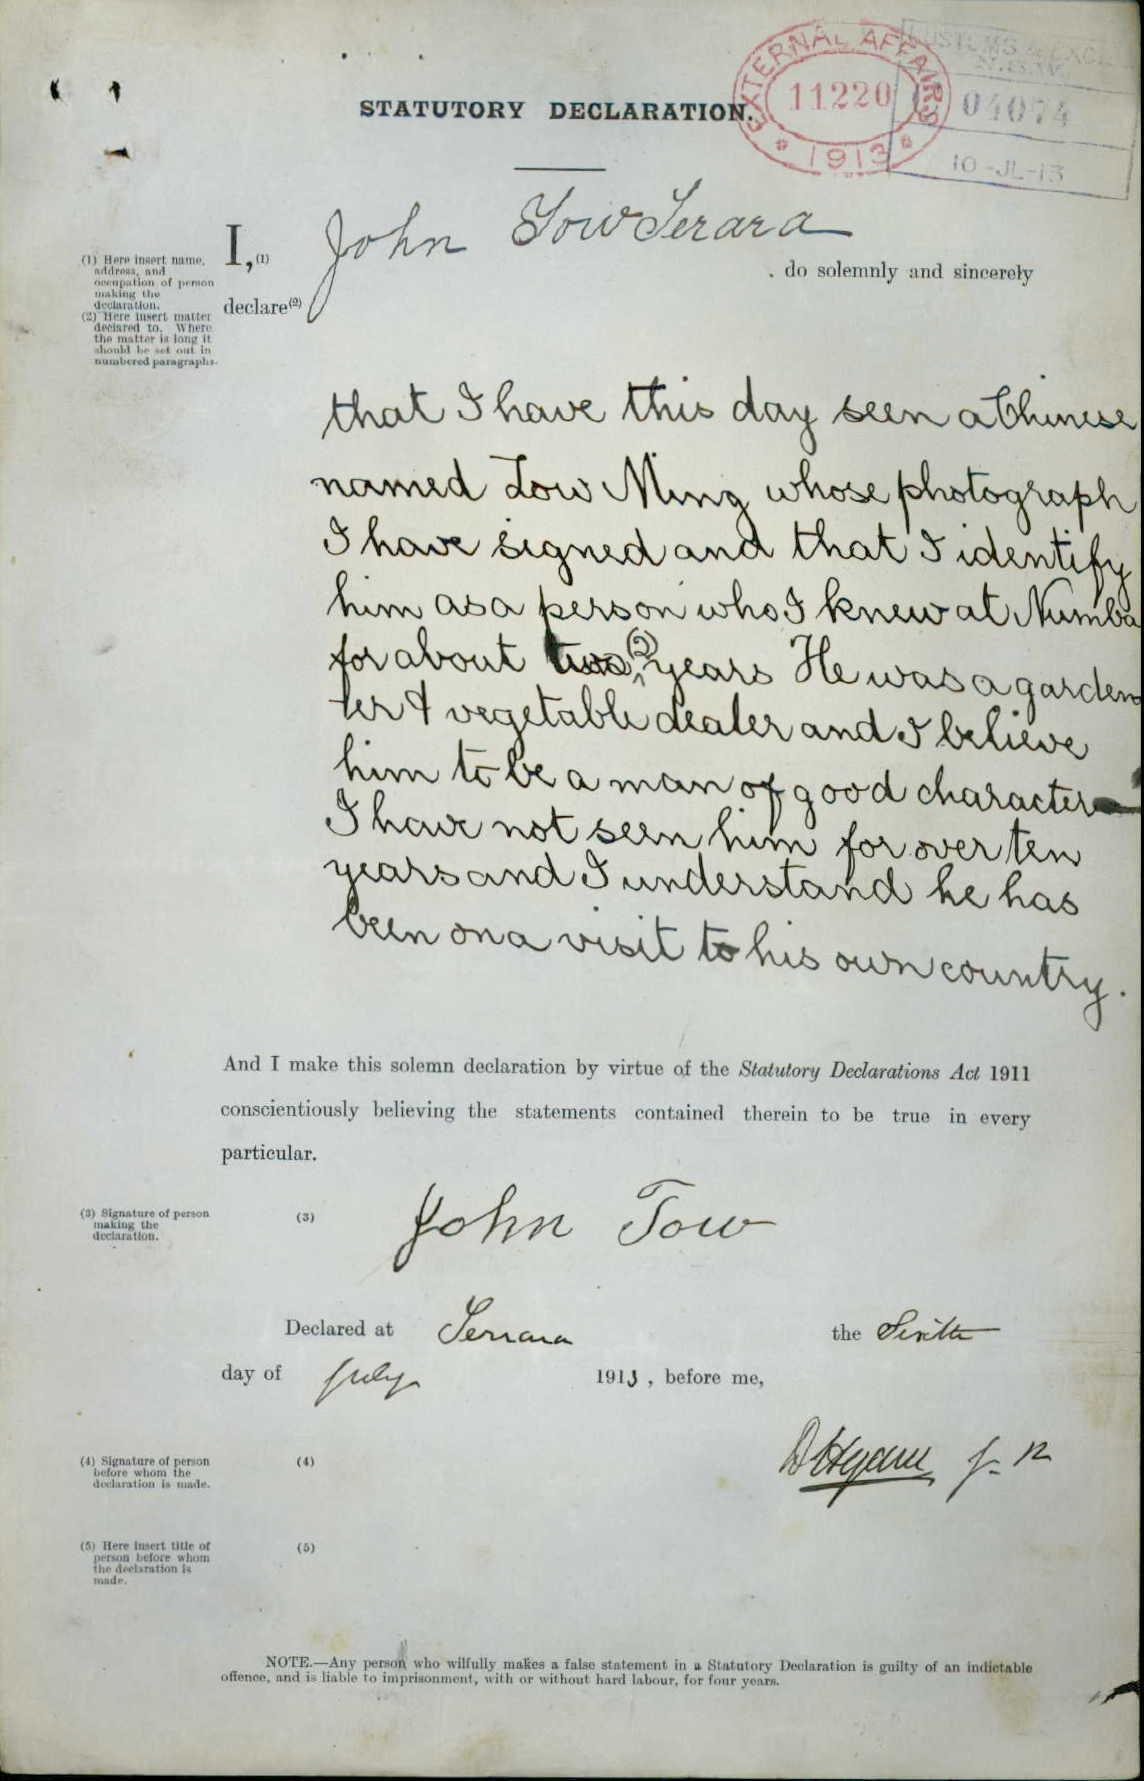 STATUTORY DECLARATION.
EXTERNAL AFFAIRS
11220
1913
CUSTOMS & EXCISE
N.S.W.
04074
10-JL-13
I, (1) John Tow Terara
. do solemnly and sincerely
declare (2)
(1) Here insert name,
address, and
occupation of person
making the
declaration.
(2) Here insert matter
declared to. Where
the matter is long it
should be set out in
numbered paragraphs.
that I have this day seen a Chinese
named Low Ming whose photograph
I have signed and that I identify
him as a person who I knew at Numba
for about two (2) years He was a garden
er & vegetable dealer and I believe
him to be a man of good character
I have not seen him for over ten
years and I understand he has
been on a visit to his own country.
And I make this solemn declaration by virtue of the Statutory Declarations Act 1911
conscientiously believing the statements contained therein to be true in every
particular.
(3) Signature of person
making the
declaration.
(3) John Tow
Declared at Terrara the Sixth
day of July 1913, before me,
(4) Signature of person
before whom the
declaration is made.
(4)
(5) Here insert title of
person before whom
the declaration is
made.
(5)
NOTE.—Any person who wilfully makes a false statement in a Statutory Declaration is guilty of an indictable
offence, and is liable to imprisonment, with or without hard labour, for four years.